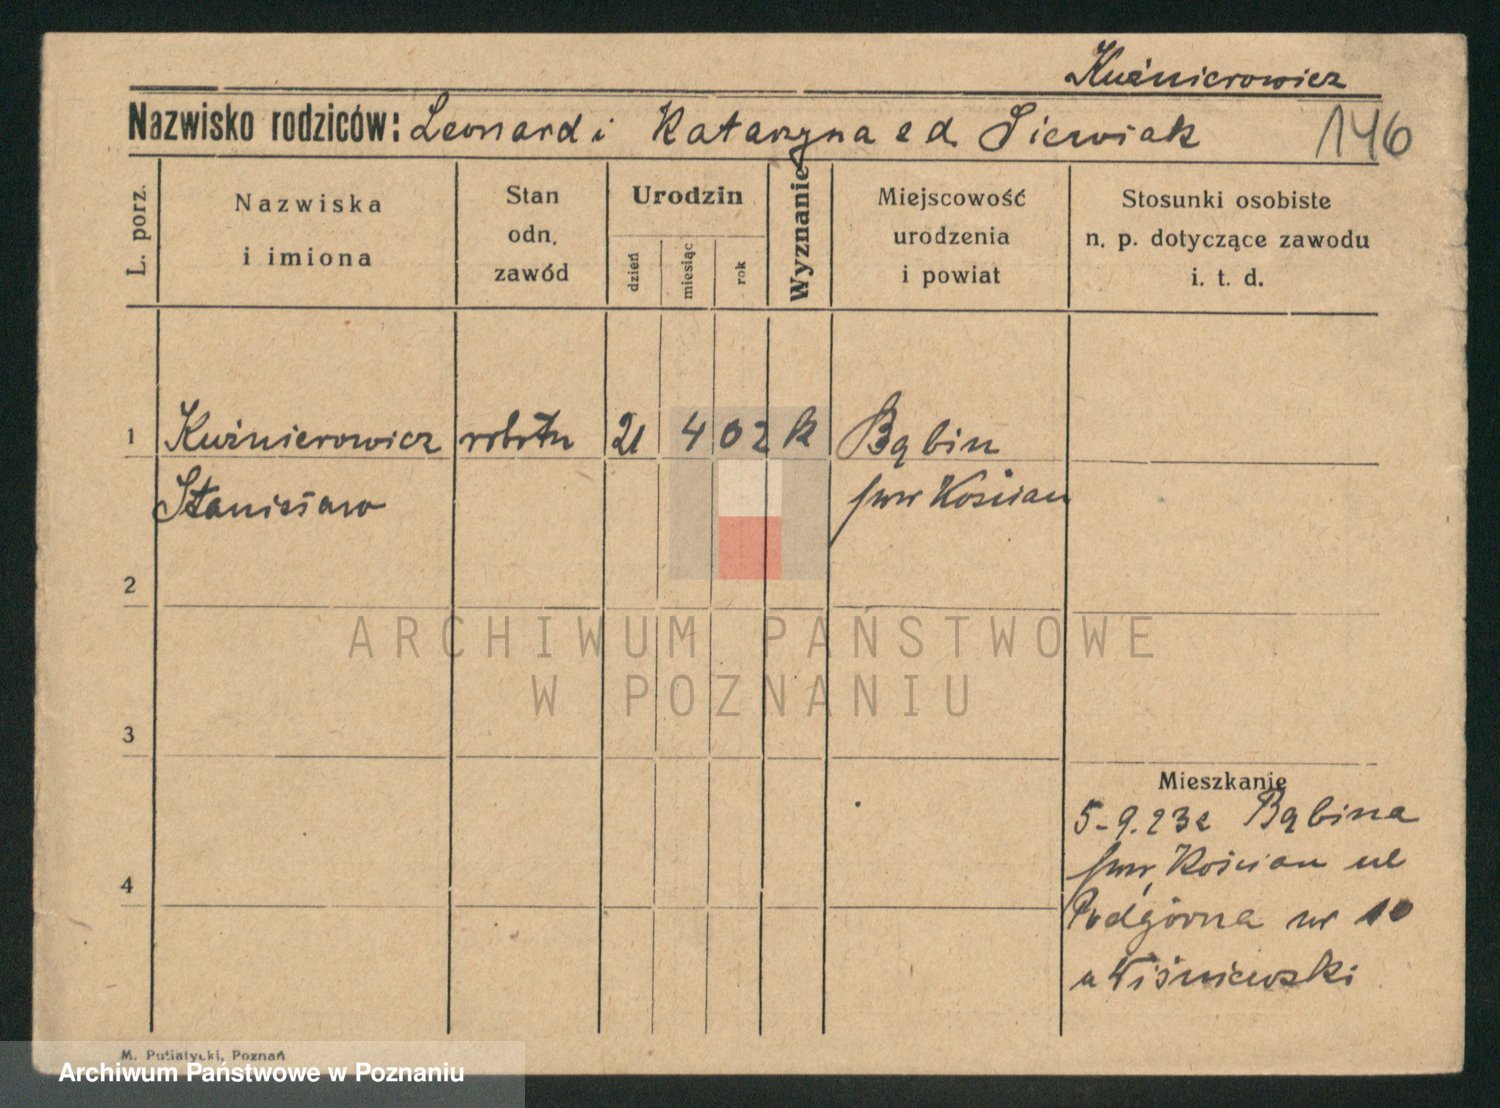 Kuźnierowicz
Nazwisko rodziców: Leonard i Katarzyna z d. Siewiak
146
L. porz.
Nazwiska
i imiona
Stan
odn.
zawód
Urodzin
dzień
miesiąc
rok
Wyznanie
Miejscowość
urodzenia
i powiat
Stosunki osobiste
n. p. dotyczące zawodu
i. t. d.
1 Kuźnierowicz robotn 21 4 02 k Bąbin
Stanisław pow Kościan
2
ARCHIWUM PAŃSTWOWE
W POZNANIU
3
Mieszkanie
5-9.23 z Bąbina
pow, Kościan ul
4
Podgórna nr 10
u Wiśniewski
M. Putiatycki, Poznań
Archiwum Państwowe w Poznaniu